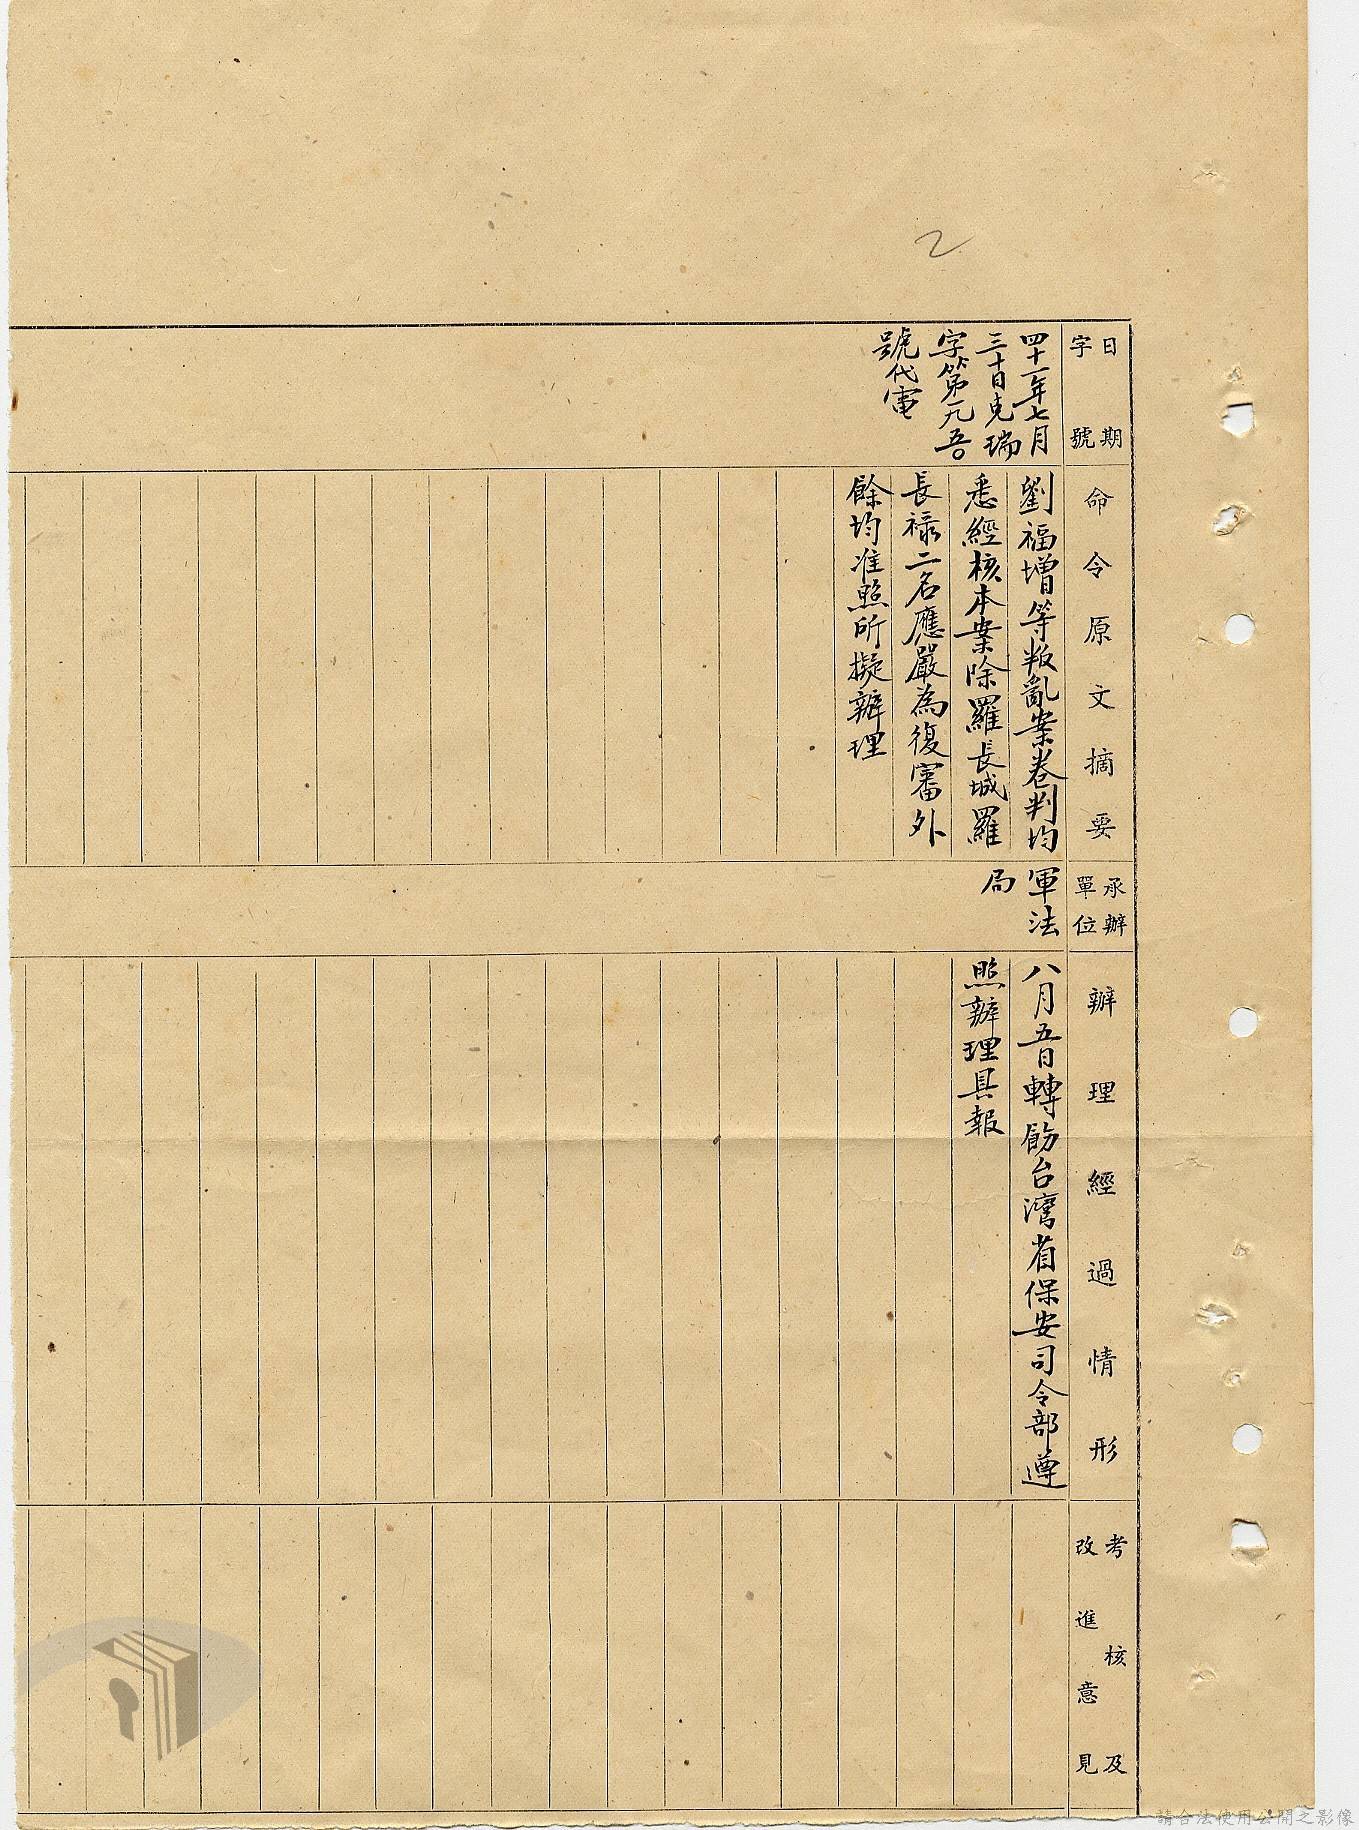 2
日期
字號
四十一年七月
三十日克瑞
字第一九五〇
號代電
命令原文摘要
劉福增等叛亂案卷判均
悉經核本案除羅長城羅
長祿二名應嚴為復審外
餘均准照所擬辦理
承辦
單位
軍法
局
辦理經過情形
八月五日轉飭台灣省保安司令部遵
照辦理具報
考核及
改進意見
請合法使用公開之影像